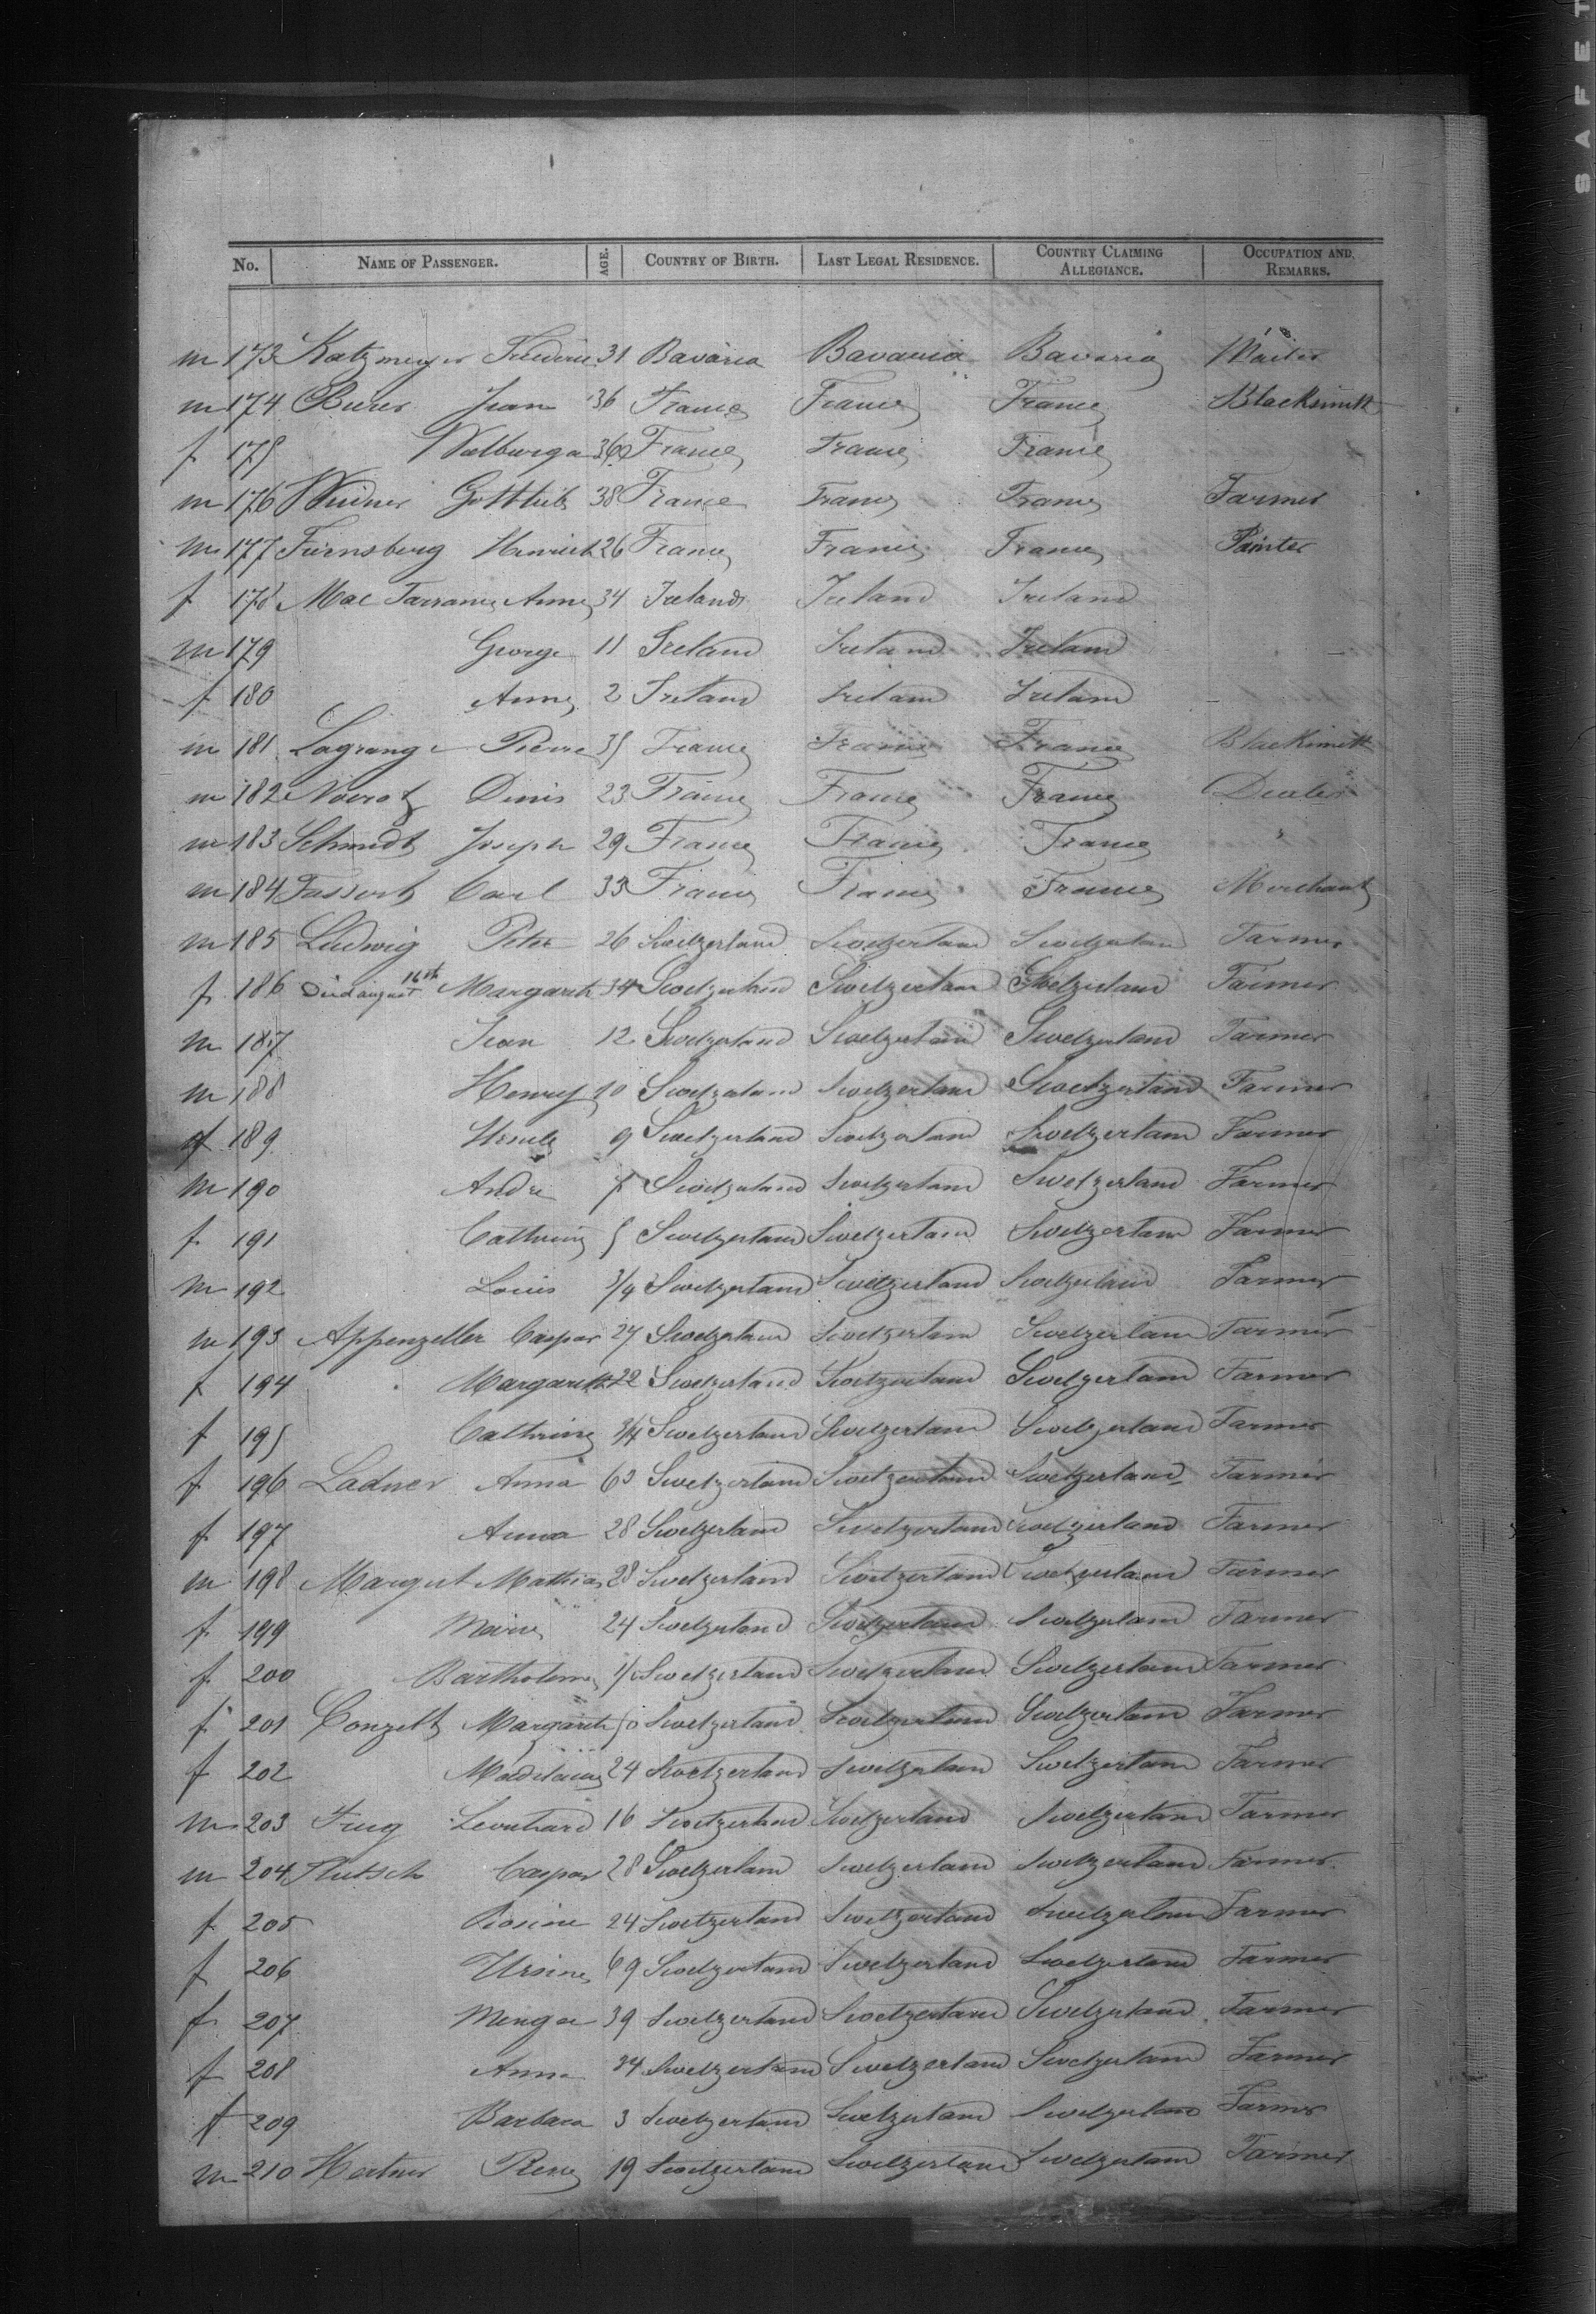 SAFET
No. NAME OF PASSENGER. AGE. COUNTRY OF BIRTH. LAST LEGAL RESIDENCE. COUNTRY CLAIMING ALLEGIANCE. OCCUPATION AND REMARKS.
m 173 Katzmeyer Frederic 31 Bavaria Bavaria Bavaria
m 174 Jean 36 France France France Blacksmith
f 175 Walburga 36 France France France
m 176 Weidner Gottlieb 38 France France France Farmer
m 177 Furnsberg 26 France France France Painter
f 178 Mac Anne 34 Ireland Ireland Ireland
m 179 George 11 Ireland Ireland Ireland
f 180 Anne 2 Ireland Ireland Ireland
m 181 Lagrange Pierre 35 France France France Blacksmith
m 182 Denis 23 France France France Dealer
m 183 Schmidt Joseph 29 France France France "
m 184 Carl 33 France France France Merchant
m 185 Ludwig Peter 26 Swetzerland Swetzerland Swetzerland Farmer
f 186 Died august 16th Margareth 34 Swetzerland Swetzerland Swetzerland Farmer
m 187 Jean 12 Swetzerland Swetzerland Swetzerland Farmer
m 188 Henry 10 Swetzerland Swetzerland Swetzerland Farmer
f 189 Ursule 9 Swetzerland Swetzerland Swetzerland Farmer
m 190 Andre Swetzerland Swetzerland Swetzerland Farmer
f 191 Cathrine 5 Swetzerland Swetzerland Swetzerland Farmer
m 192 Louis Swetzerland Swetzerland Swetzerland Farmer
m 193 Appenzeller Caspar 27 Swetzerland Swetzerland Swetzerland Farmer
f 194 Margareth 22 Swetzerland Swetzerland Swetzerland Farmer
f 195 Cathrine 3/4 Swetzerland Swetzerland Swetzerland Farmer
f 196 Ladner Anna 63 Swetzerland Swetzerland Swetzerland Farmer
f 197 Anna 28 Swetzerland Swetzerland Swetzerland Farmer
m 198 Margut Mathias 28 Swetzerland Swetzerland Swetzerland Farmer
f 199 Marie 24 Swetzerland Swetzerland Swetzerland Farmer
f 200 Bartholome Swetzerland Swetzerland Swetzerland Farmer
f 201 Conzett Margareth 50 Swetzerland Swetzerland Swetzerland Farmer
f 202 24 Swetzerland Swetzerland Swetzerland Farmer
m 203 Leonhard 16 Swetzerland Swetzerland Swetzerland Farmer
m 204 Caspar 28 Swetzerland Swetzerland Swetzerland Farmer
f 205 Rosine 24 Swetzerland Swetzerland Swetzerland Farmer
f 206 Ursine 69 Swetzerland Swetzerland Swetzerland Farmer
f 207 Menga 39 Swetzerland Swetzerland Swetzerland Farmer
f 208 Anna 34 Swetzerland Swetzerland Swetzerland Farmer
f 209 Barbara 3 Swetzerland Swetzerland Swetzerland Farmer
m 210 19 Swetzerland Swetzerland Swetzerland Farmer